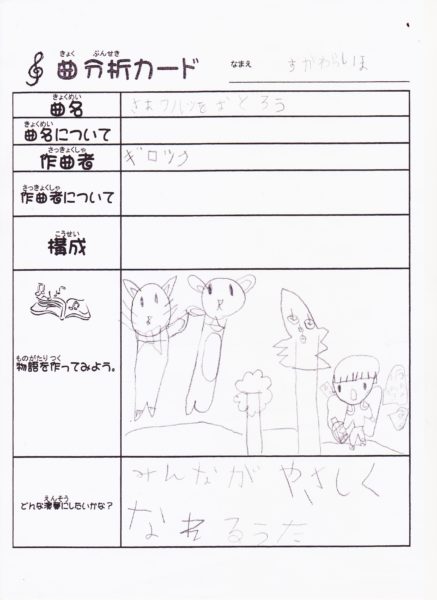 きょく ぶんせき
曲分析カード
なまえ すがわらしほ
きょくめい
曲名 さあワルツをおどろう
きょくめい
曲名について
さっきょくしゃ
作曲者 ギロック
さっきょくしゃ
作曲者について
こうせい
構成
ものがたり つく
物語を作ってみよう。
えんそう
どんな演奏にしたいかな?
みんながやさしく
なれるうた